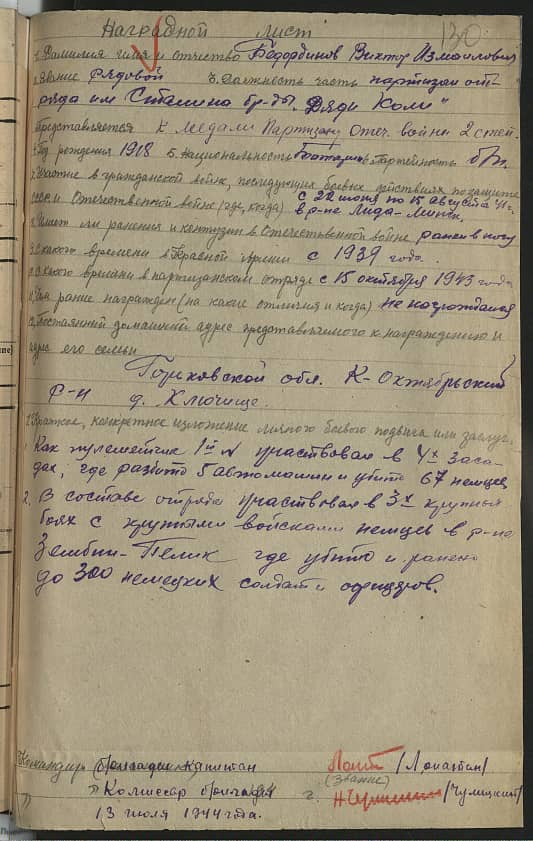 130
Наградной лист
1. Фамилия имя и отчество Федорбинов Виктор Измаилович
2. Звание Рядовой 3. Должность часть партизан от-
ряда им Сталина бр-ды „Дяди Коли"
Представляется К Медали Партизану Отеч. войны 2 степ.
4. Год рождения 1918 5. Национальность 6. Партийность б/п.
7. Участие в гражданской войне, последующих боевых действиях по защите
СССР и Отечественной войне (где, когда) с 22 июня по 15 августа 41 г.
в р-не Лида-Минск.
8. Имеет ли ранения и контузии в Отечественной войне ранен в ногу
9. С какого времени в Красной Армии с 1939 года.
10. С какого времени в партизанском отряде с 15 октября 1943 года
11. Чем ранее награжден (на какие отличия и когда) не награждался
12. Постоянный домашний адрес представляемого к награждению и
адрес его семьи
Горьковской обл. К-Октябрьский
р-н д. Ключище.
Краткое, конкретное изложение личного боевого подвига или заслуг.
1. Как пулеметчик 1й N участвовал в 4х заса-
дах, где разбито 5 автомашин и убито 67 немцев
2. В составе отряда участвовал в 3х крупных
боях с крупными войсками немцев в р-не
Зембин-Пелик где убито и ранено
до 300 немецких солдат и офицеров.
Командир бригады капитан /Лопатин/
(звание)
Комиссар бригады /Чулицкий/
13 июля 1944 года.